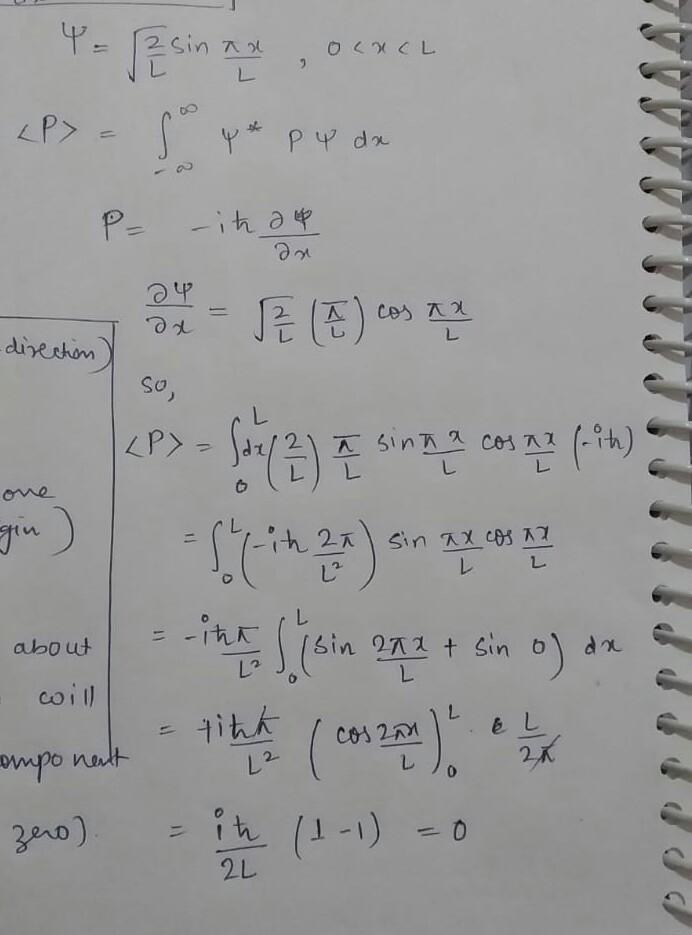 Ψ = √(2/L) sin πx/L , 0 < x < L
<P> = ∫_{-∞}^{∞} Ψ* P Ψ dx
P = -iħ ∂Ψ/∂x
∂Ψ/∂x = √(2/L) (π/L) cos πx/L
direction)
so,
<P> = ∫_0^L dx (2/L) π/L sin πx/L cos πx/L (-iħ)
one
gin)
= ∫_0^L (-iħ 2π/L²) sin πx/L cos πx/L
about
= -iħπ/L² ∫_0^L (sin 2πx/L + sin 0) dx
coill
= +iħπ/L² (cos 2πx/L)_0^L · L/2π
omponent
zero).
= iħ/2L (1-1) = 0